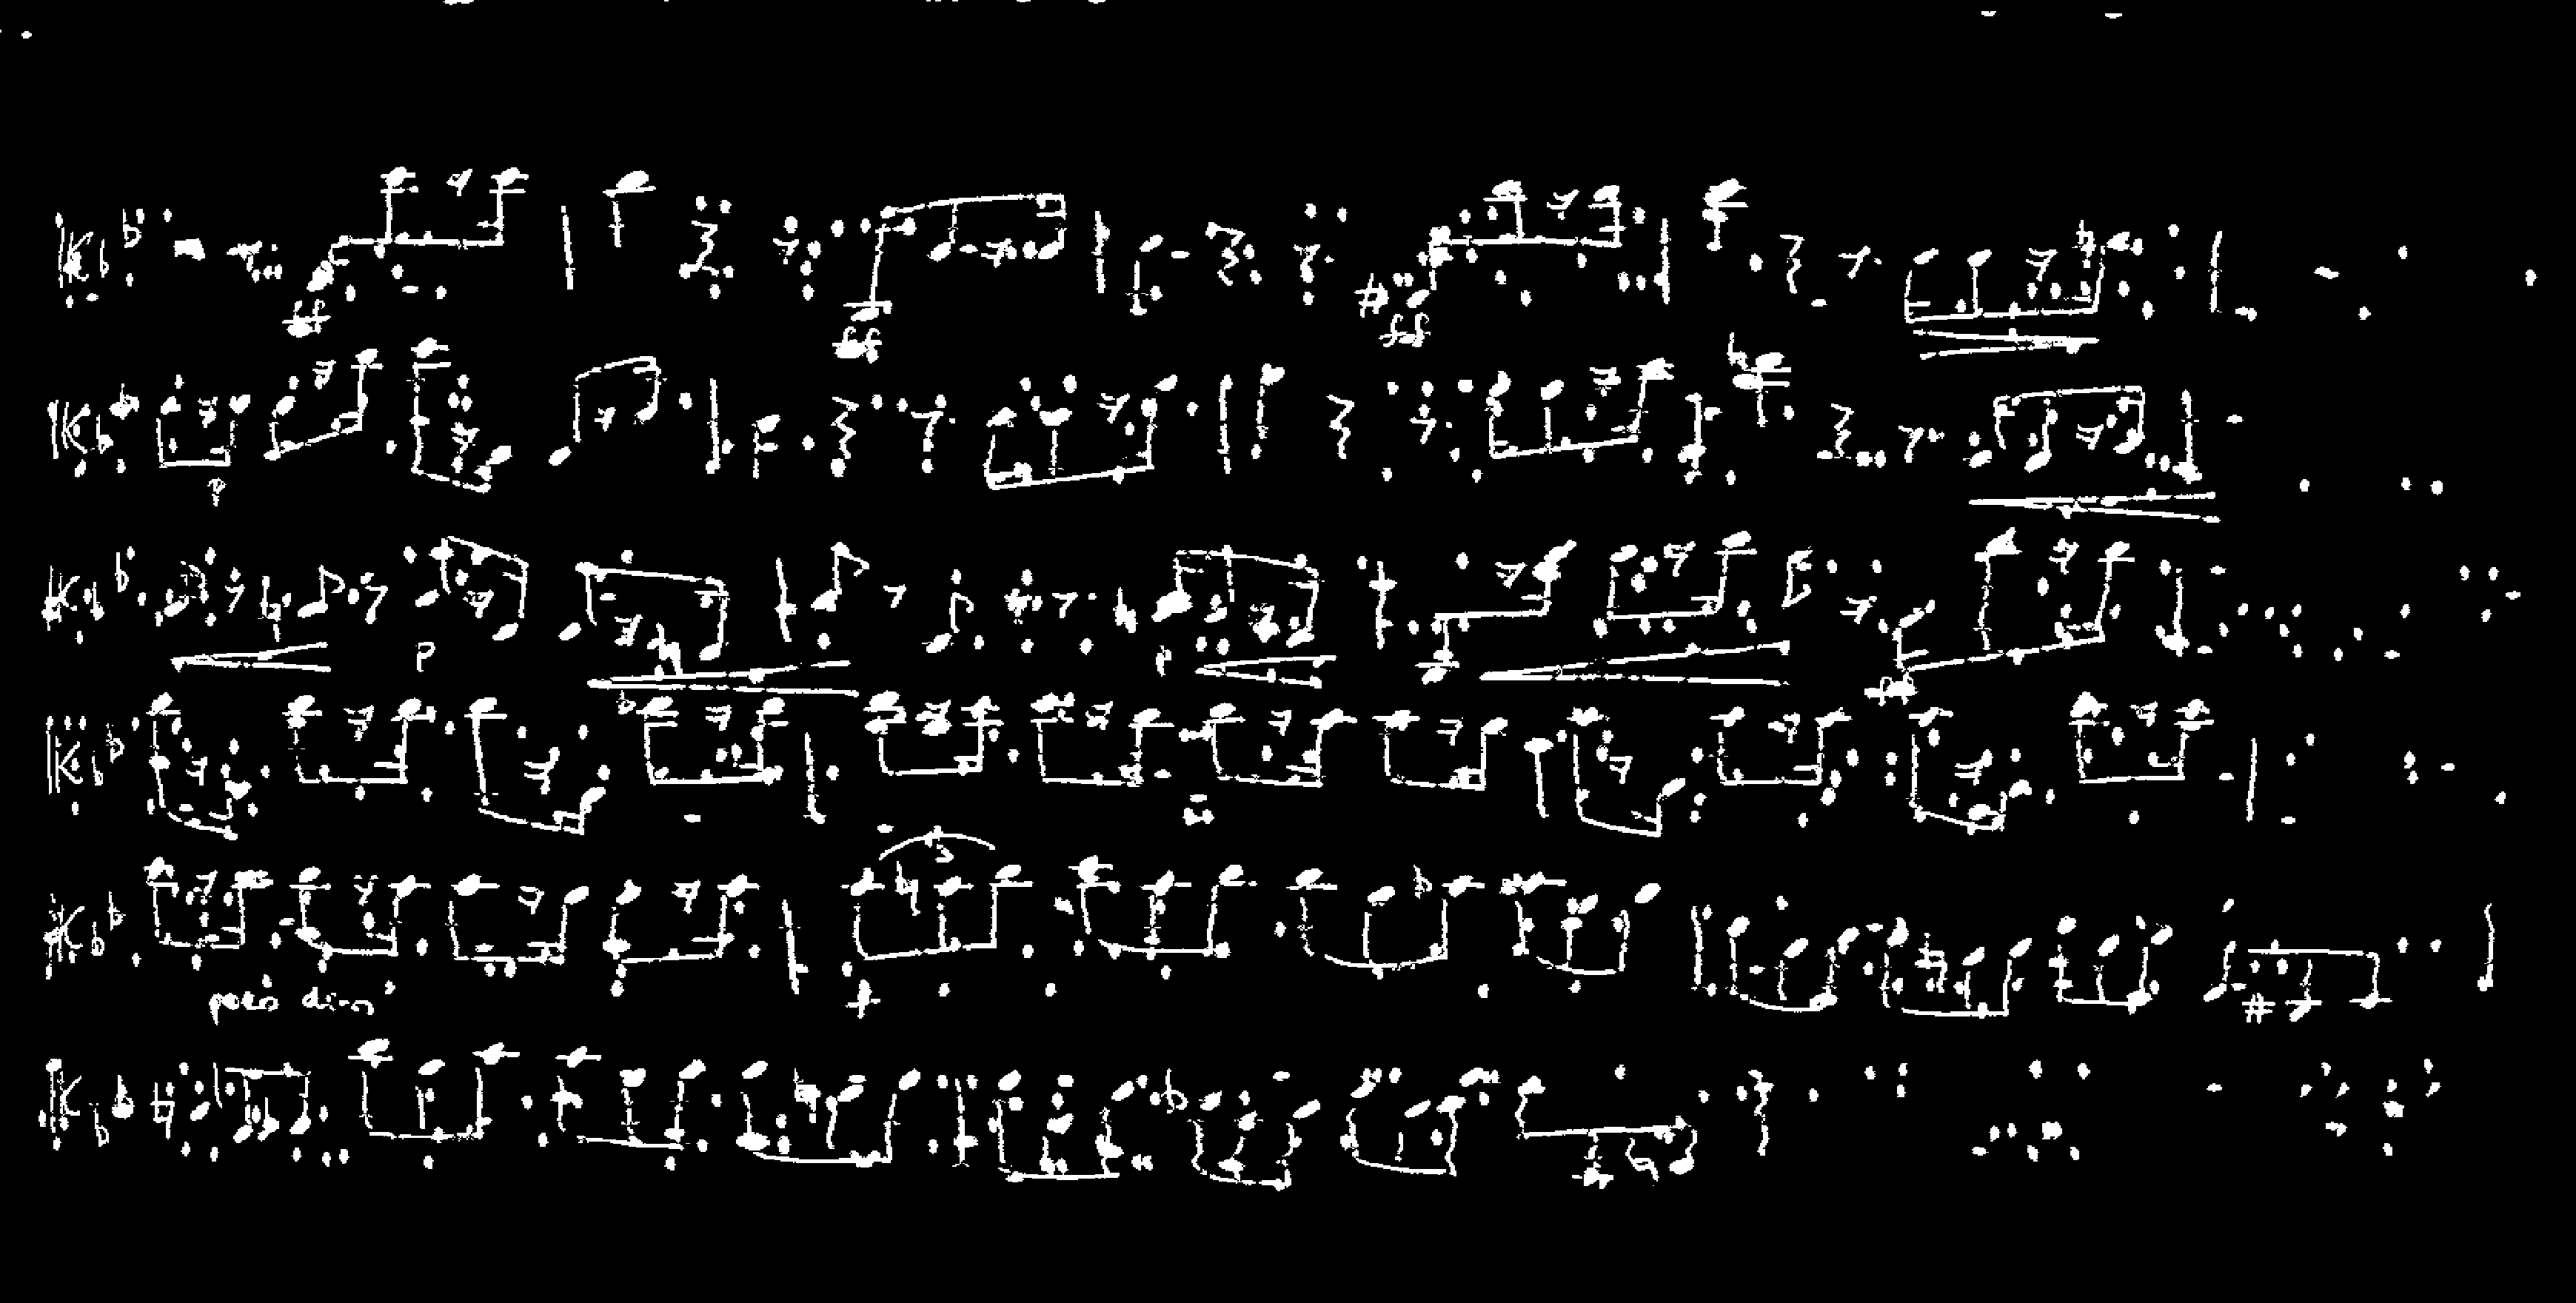 ff ff ff
p
p p ff
3
poco dim